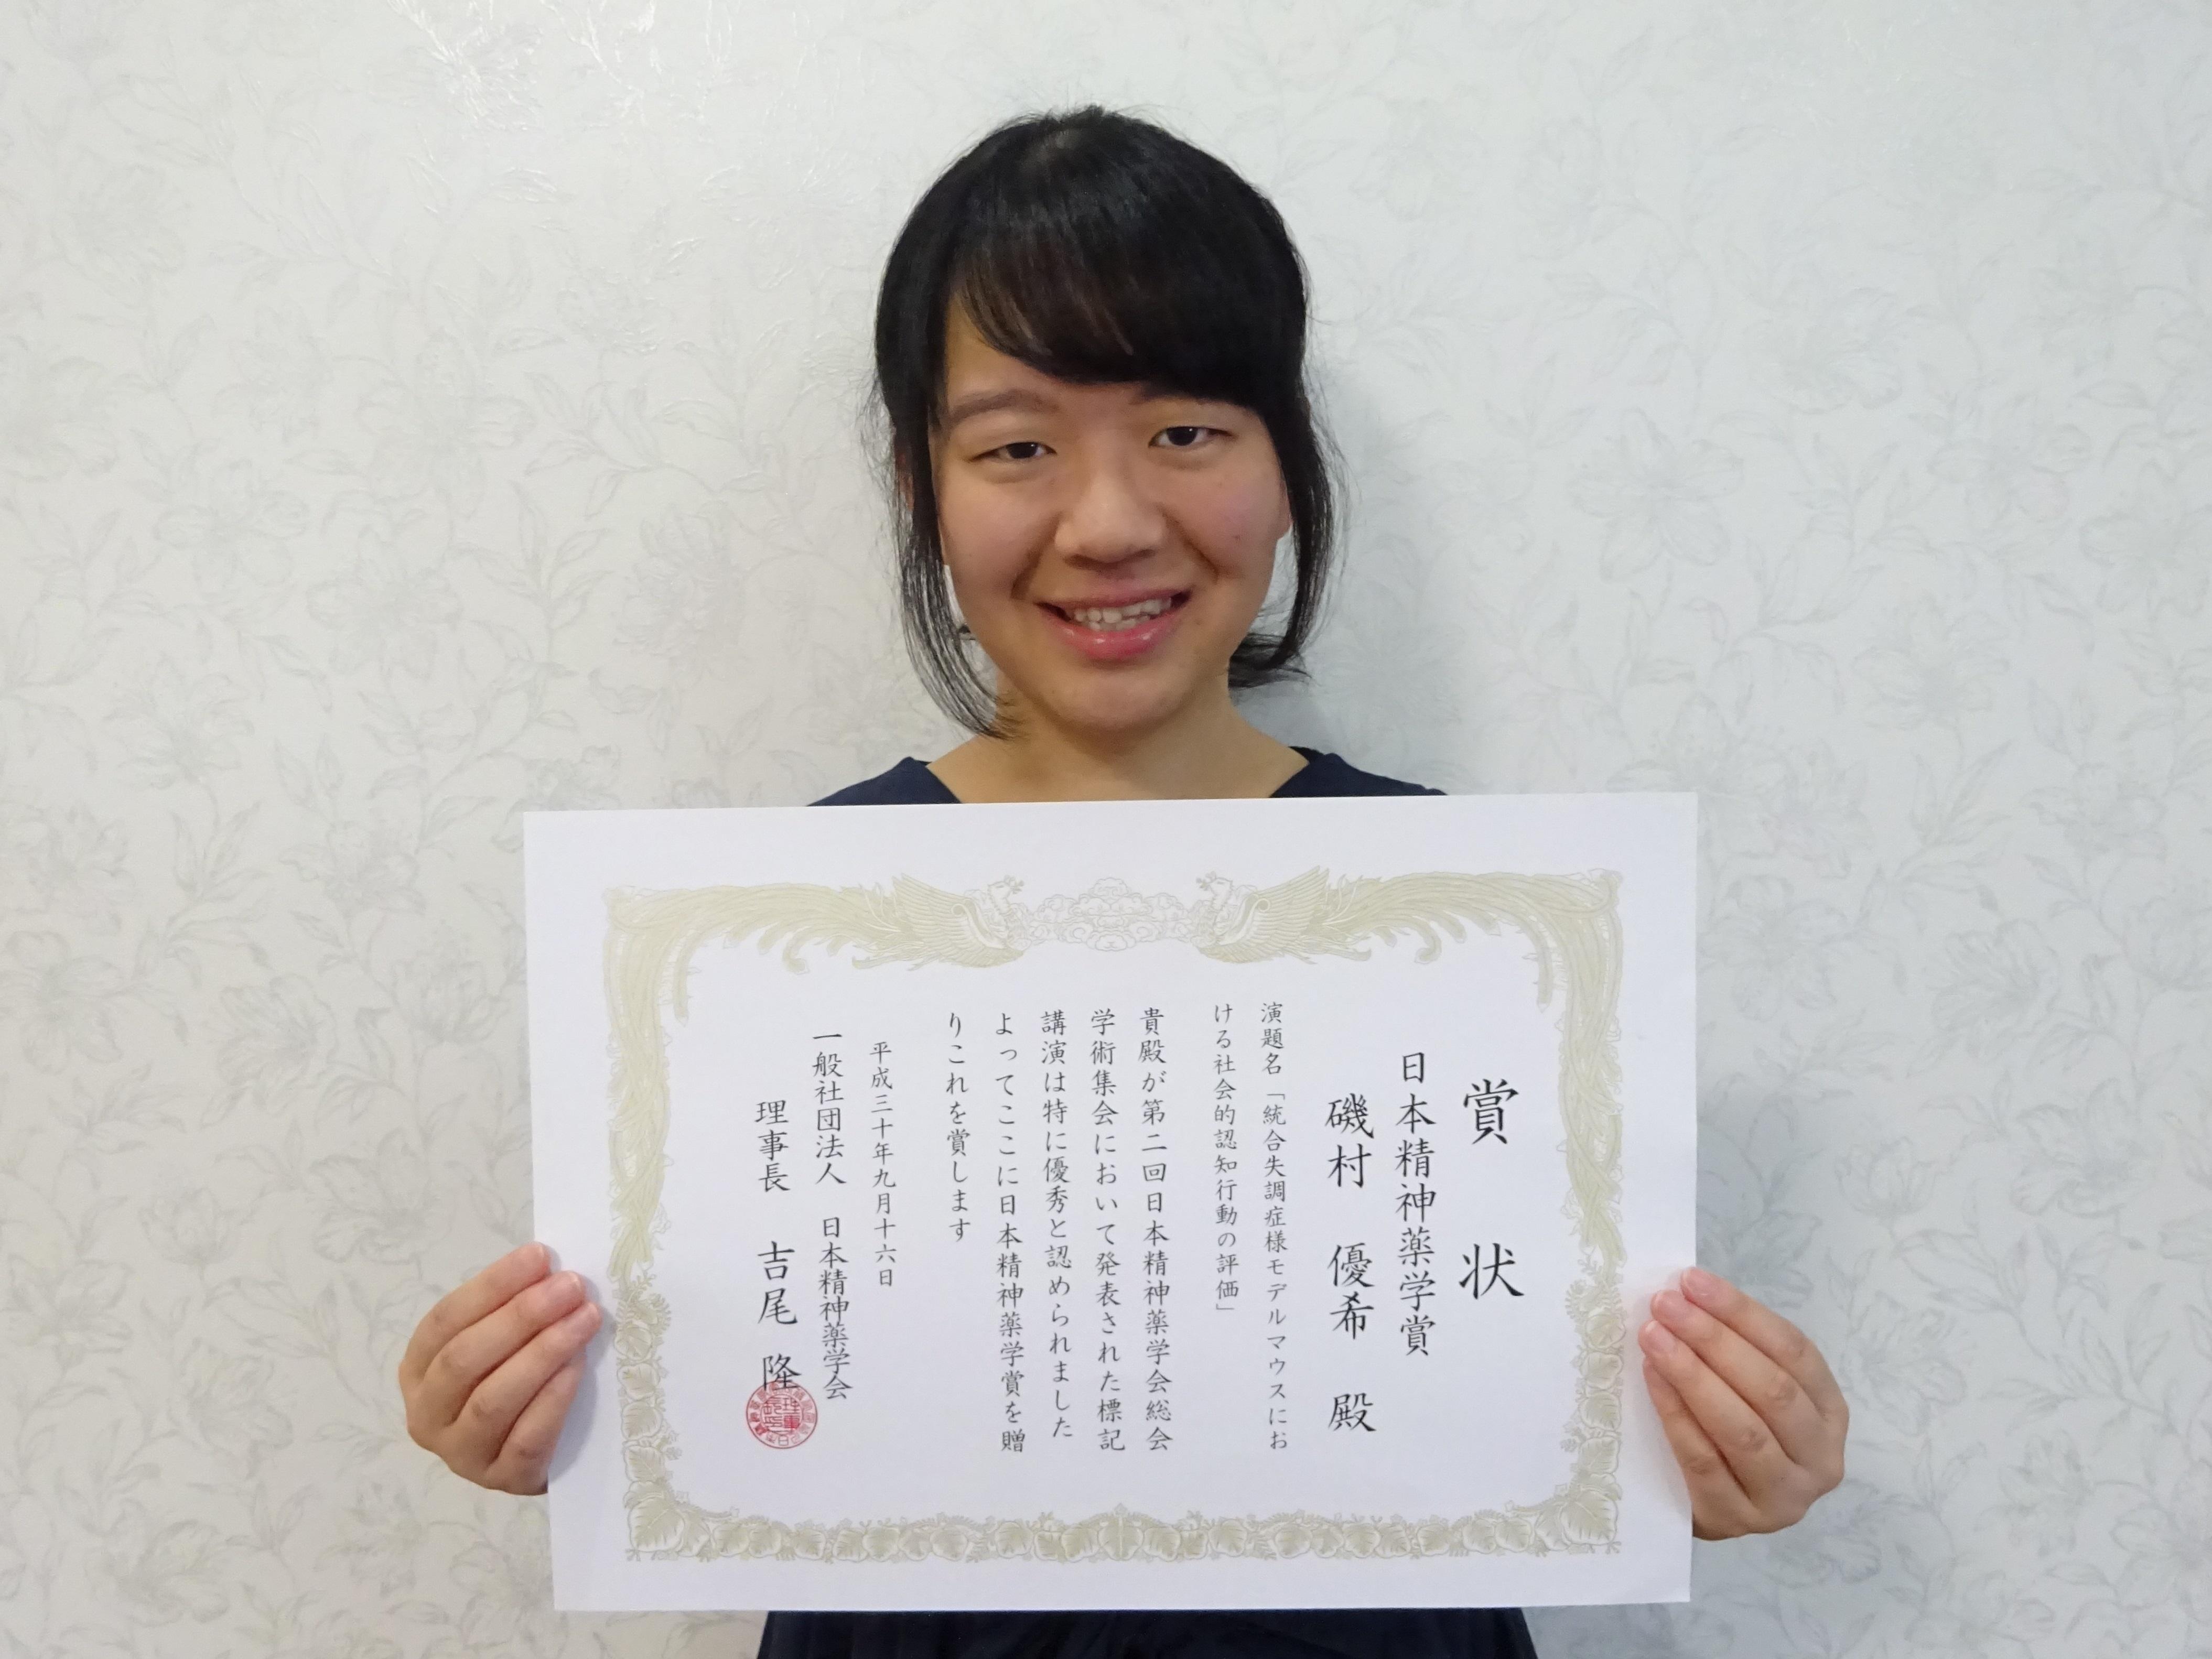 賞状
日本精神薬学賞
磯村 優希 殿
演題名「統合失調症様モデルマウスにお
ける社会的認知行動の評価」
貴殿が第二回日本精神薬学会総会
学術集会において発表された標記
講演は特に優秀と認められました
よってここに日本精神薬学賞を贈
りこれを賞します
平成三十年九月十六日
一般社団法人 日本精神薬学会
理事長 吉尾 隆